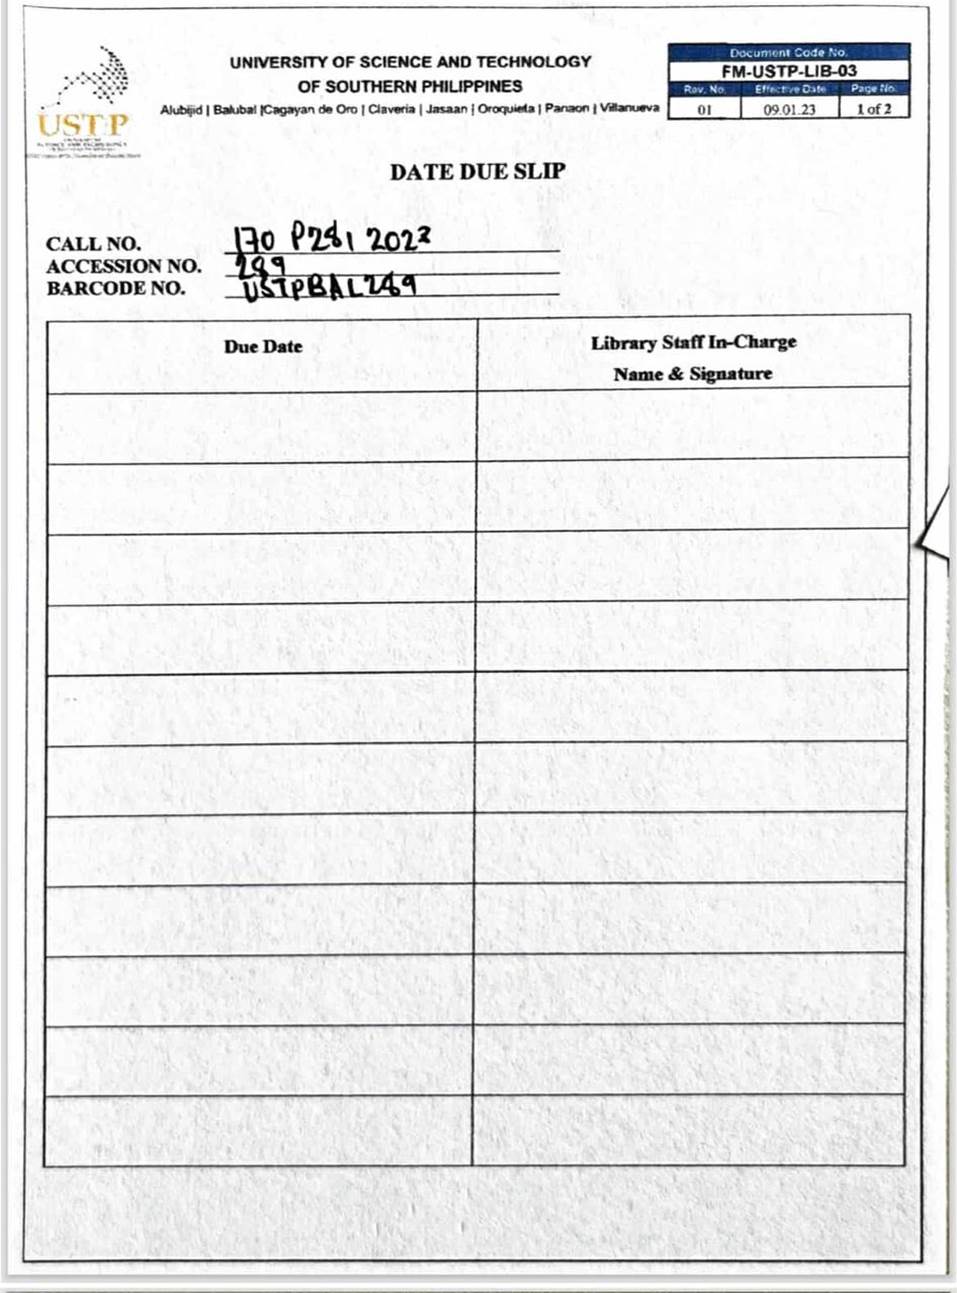 UNIVERSITY OF SCIENCE AND TECHNOLOGY
OF SOUTHERN PHILIPPINES
Alubijid | Balubal |Cagayan de Oro | Claveria | Jasaan | Oroquieta | Panaon | Villanueva
USTP
Document Code No.
FM-USTP-LIB-03
Rev. No. Effective Date Page No.
01 09.01.23 1 of 2
DATE DUE SLIP
CALL NO. 170 P281 2022
ACCESSION NO. 289
BARCODE NO. USTPBAL289
Due Date
Library Staff In-Charge
Name & Signature